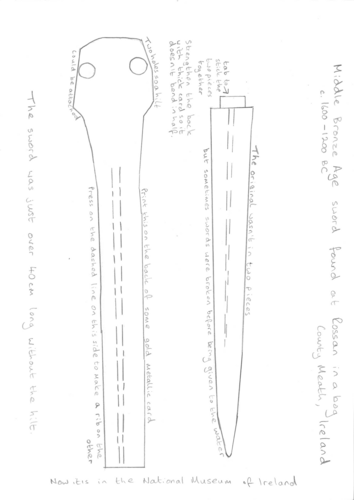 Middle Bronze Age sword found at Rossan in a bog
c. 1600-1200 BC
County Meath, Ireland
The original wasn't in two pieces
but sometimes swords were broken before being given to the water
tab to
stick the
two pieces
together
strengthen the back
with thick card so it
doesn't bend in half.
Two holes so a hilt
could be attached
Print this on the back of some gold metallic card
Press on the dashed line on this side to make a rib on the
other
The sword was just over 40cm long without the hilt.
Now it is in the National Museum of Ireland